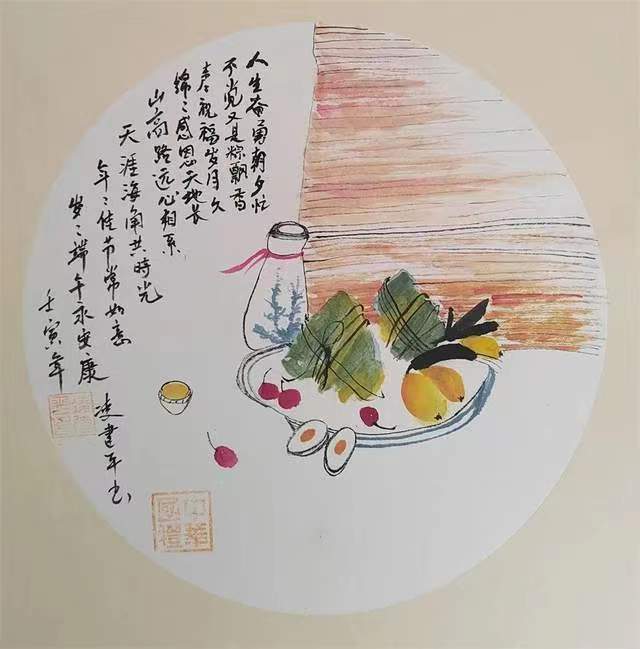 人生奋勇朝夕忙
不觉又是粽飘香
奉祝福岁月久
绵々感恩天地长
山高路远心相系
天涯海角共时光
年々佳节常如意
岁々端午永安康
壬寅年
凌建平书
中华
国礼